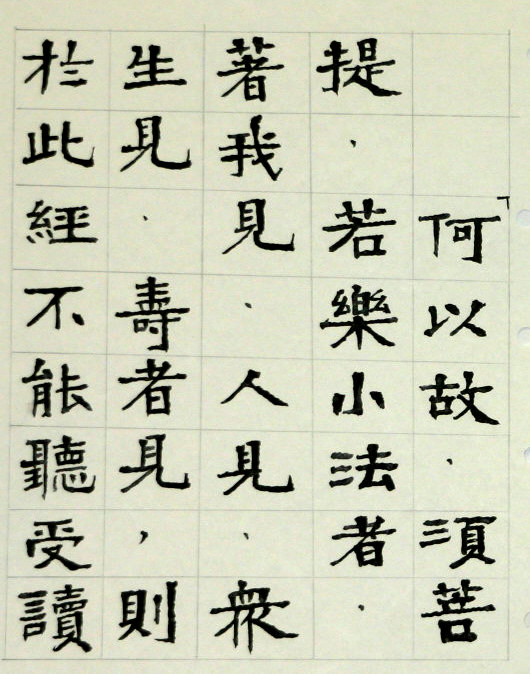 「何以故．須菩
提．若樂小法者．
著我見．人見．衆
生見．壽者見，則
於此經不能聽受讀